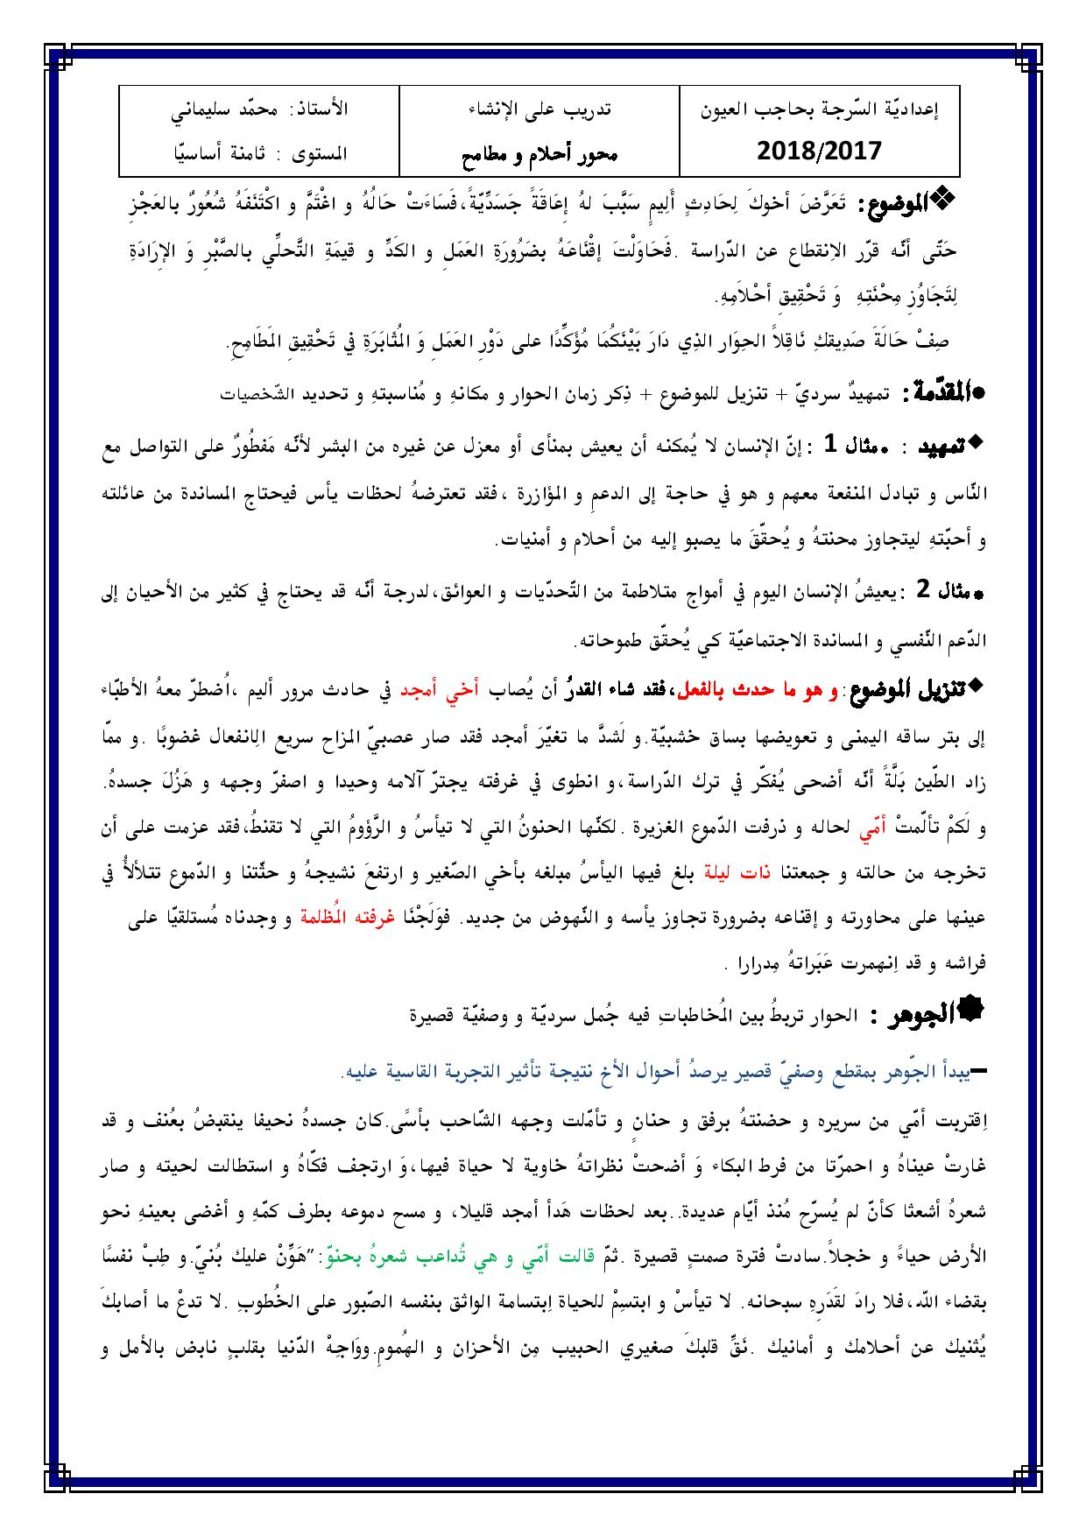 إعداديّة السّرجة بحاجب العيون
2018/2017
تدريب على الإنشاء
محور أحلام و مطامح
الأستاذ: محمّد سليماني
المستوى : ثامنة أساسيّا
❖الموضوع: تَعَرَّضَ أخوكَ لِحَادِثٍ أَلِيمٍ سَبَّبَ لهُ إعَاقَةً جَسَدِّيّةً،فَسَاءَتْ حَالُهُ و اغْتَمَّ و اكْتَنَفَهُ شُعُورٌ بالعَجْزِ
حَتّى أنّه قرّر الاِنقطاع عن الدّراسة .فَحَاوَلْتَ إقْنَاعَهُ بضَرُورَةِ العَمَلِ و الكَدِّ و قيمَةِ التَّحلِّي بالصَّبْرِ وَ الإرَادَةِ
لِتَجَاوُزِ مِحْنَتِهِ وَ تَحْقِيقِ أحْلاَمِهِ.
صِفْ حَالَةَ صَدِيقكِ نَاقِلاً الحِوَار الذِي دَارَ بَيْنَكُمَا مُؤَكِّدًا على دَوْرِ العَمَلِ وَ المُثَابَرَةِ في تَحْقِيقِ المَطَامِحِ.
●المقدّمة: تمهيدٌ سرديّ + تنزيل للموضوع + ذِكر زمان الحوار و مكانهِ و مُناسبتهِ و تحديد الشّخصيات
◆تمهيد : •مثال 1 :إنّ الإنسان لا يُمكنه أن يعيش بمنأى أو معزل عن غيره من البشر لأنّه مَفطُورٌ على التواصل مع
النّاس و تبادل المنفعة معهم و هو في حاجة إلى الدعمِ و المؤازرة ،فقد تعترضهُ لحظات يأس فيحتاج المساندة من عائلته
و أحبّتهِ ليتجاوز محنتهُ و يُحقّقَ ما يصبو إليه من أحلام و أمنيات.
•مثال 2 :يعيشُ الإنسان اليوم في أمواج متلاطمة من التّحدّيات و العوائق،لدرجة أنّه قد يحتاج في كثير من الأحيان إلى
الدّعم النّفسي و المساندة الاجتماعيّة كي يُحقّق طموحاته.
◆تنزيل الموضوع:و هو ما حدث بالفعل،فقد شاء القدرُ أن يُصاب أخي أمجد في حادث مرور أليم ،اُضطرّ معهُ الأطبّاء
إلى بتر ساقه اليمنى و تعويضها بساق خشبيّة.و لَشدَّ ما تغيّرَ أمجد فقد صار عصبيّ المزاح سريع الاِنفعال غضوبًا .و ممّا
زاد الطّين بَلَّةً أنّه أضحى يُفكّر في ترك الدّراسة،و انطوى في غرفته يجترّ آلامه وحيدا و اصفرّ وجهه و هَزُلَ جسدهُ.
و لَكمْ تألّمتْ أمّي لحاله و ذرفت الدّموع الغزيرة .لكنّها الحنونُ التي لا تيأسُ و الرَّؤومُ التي لا تقنطُ،فقد عزمت على أن
تخرجه من حالته و جمعتنا ذات ليلة بلغ فيها اليأسُ مبلغه بأخي الصّغير و ارتفعَ نشيجهُ و حثّتنا و الدّموع تتلألأُ في
عينها على محاورته و إقناعه بضرورة تجاوز يأسه و النّهوض من جديد. فوَلَجْنَا غرفته المُظلمة و وجدناه مُستلقيّا على
فراشه و قد اِنهمرت عَبَراتهُ مِدرارا .
الجوهر : الحوار تربطُ بين المُخاطباتِ فيه جُمل سرديّة و وصفيّة قصيرة
–يبدأ الجّوهر بمقطع وصفيّ قصير يرصدُ أحوال الأخ نتيجة تأثير التجربة القاسية عليه.
اِقتربت أمّي من سريره و حضنتهُ برفق و حنانٍ و تأمّلت وجهه الشّاحب بأسًى.كان جسدهُ نحيفا ينقبضُ بعُنف و قد
غارتْ عيناهُ و احمرّتا من فرط البكاء وَ أضحتْ نظراتهُ خاوية لا حياة فيها،وَ ارتجف فكّاهُ و استطالت لحيته و صار
شعرهُ أشعثا كأنّ لم يُسرّح مُنذ أيّام عديدة..بعد لحظات هَدأ أمجد قليلا، و مسح دموعه بطرف كمّهِ و أغضى بعينهِ نحو
الأرض حياءً و خجلاً.سادتْ فترة صمتٍ قصيرة .ثمّ قالت أمّي و هي تُداعب شعرهُ بحنوّ:"هَوِّنْ عليك بُنيّ.و طِبْ نفسًا
بقضاء الله،فلا رادَ لقَدَرهِ سبحانه. لا تيأسْ و ابتسِمْ للحياة اِبتسامة الواثق بنفسه الصّبور على الخُطوبِ .لا تدعْ ما أصابكَ
يُثنيك عن أحلامك و أمانيك .نَقِّ قلبكَ صغيري الحبيب مِن الأحزان و الهُمومِ.ووَاجِهْ الدّنيا بقلبٍ نابض بالأمل و